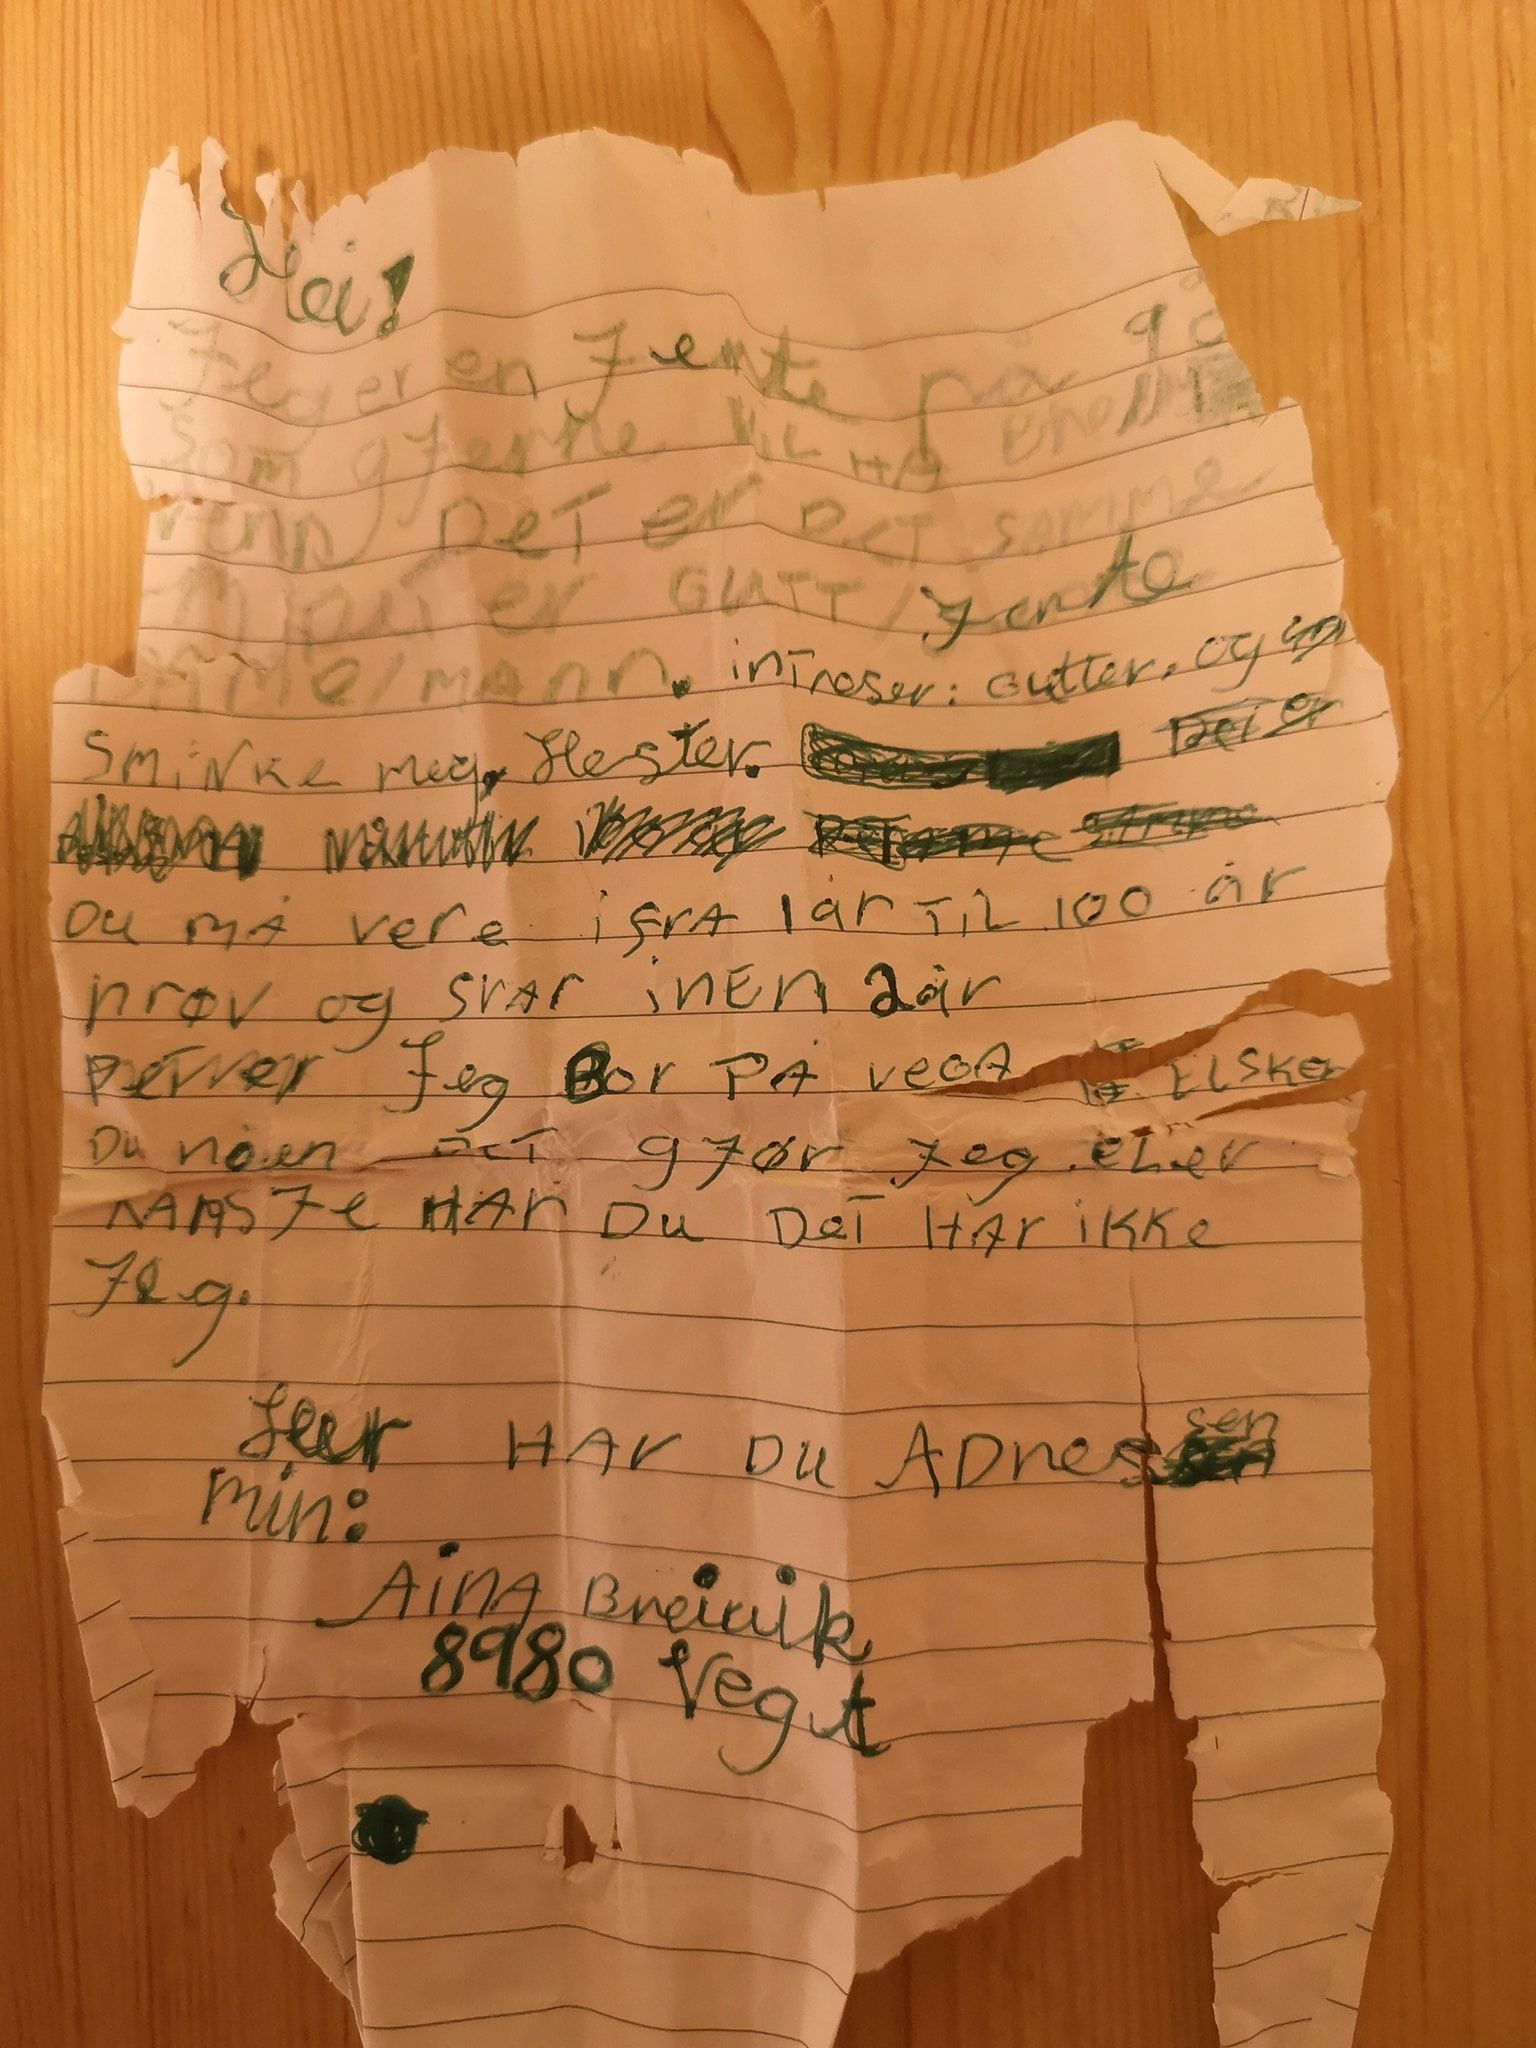 Hei!
Jeg er en Jente på 9 å
Som gJerne VIL HA Brev
venn DeT er DeT samme
om DU er GUTT / Jente
DAMe / mann. inTreser: Gutter. og
SMiNKe meg, Hester.
DU MÅ vere ifrA 1 år TiL 100 år
prøv og svar inEn 2 år
Jeg Bor PÅ vegA ELSKer
Du noen DeT gJør Jeg. ELer
KANSJe HAr DU DeT HAr iKKe
Jeg.
Her HAr DU ADressen
min:
AinA Breivik
8980 VegA